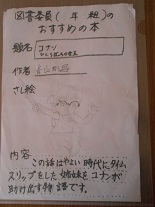 図書委員( 年 組)の
おすすめの本
題名
コナン
作者 青山剛昌
さし絵
内容
この話はやよい時代にタイム
スリップをした姉妹をコナンが
助け出す物語です。